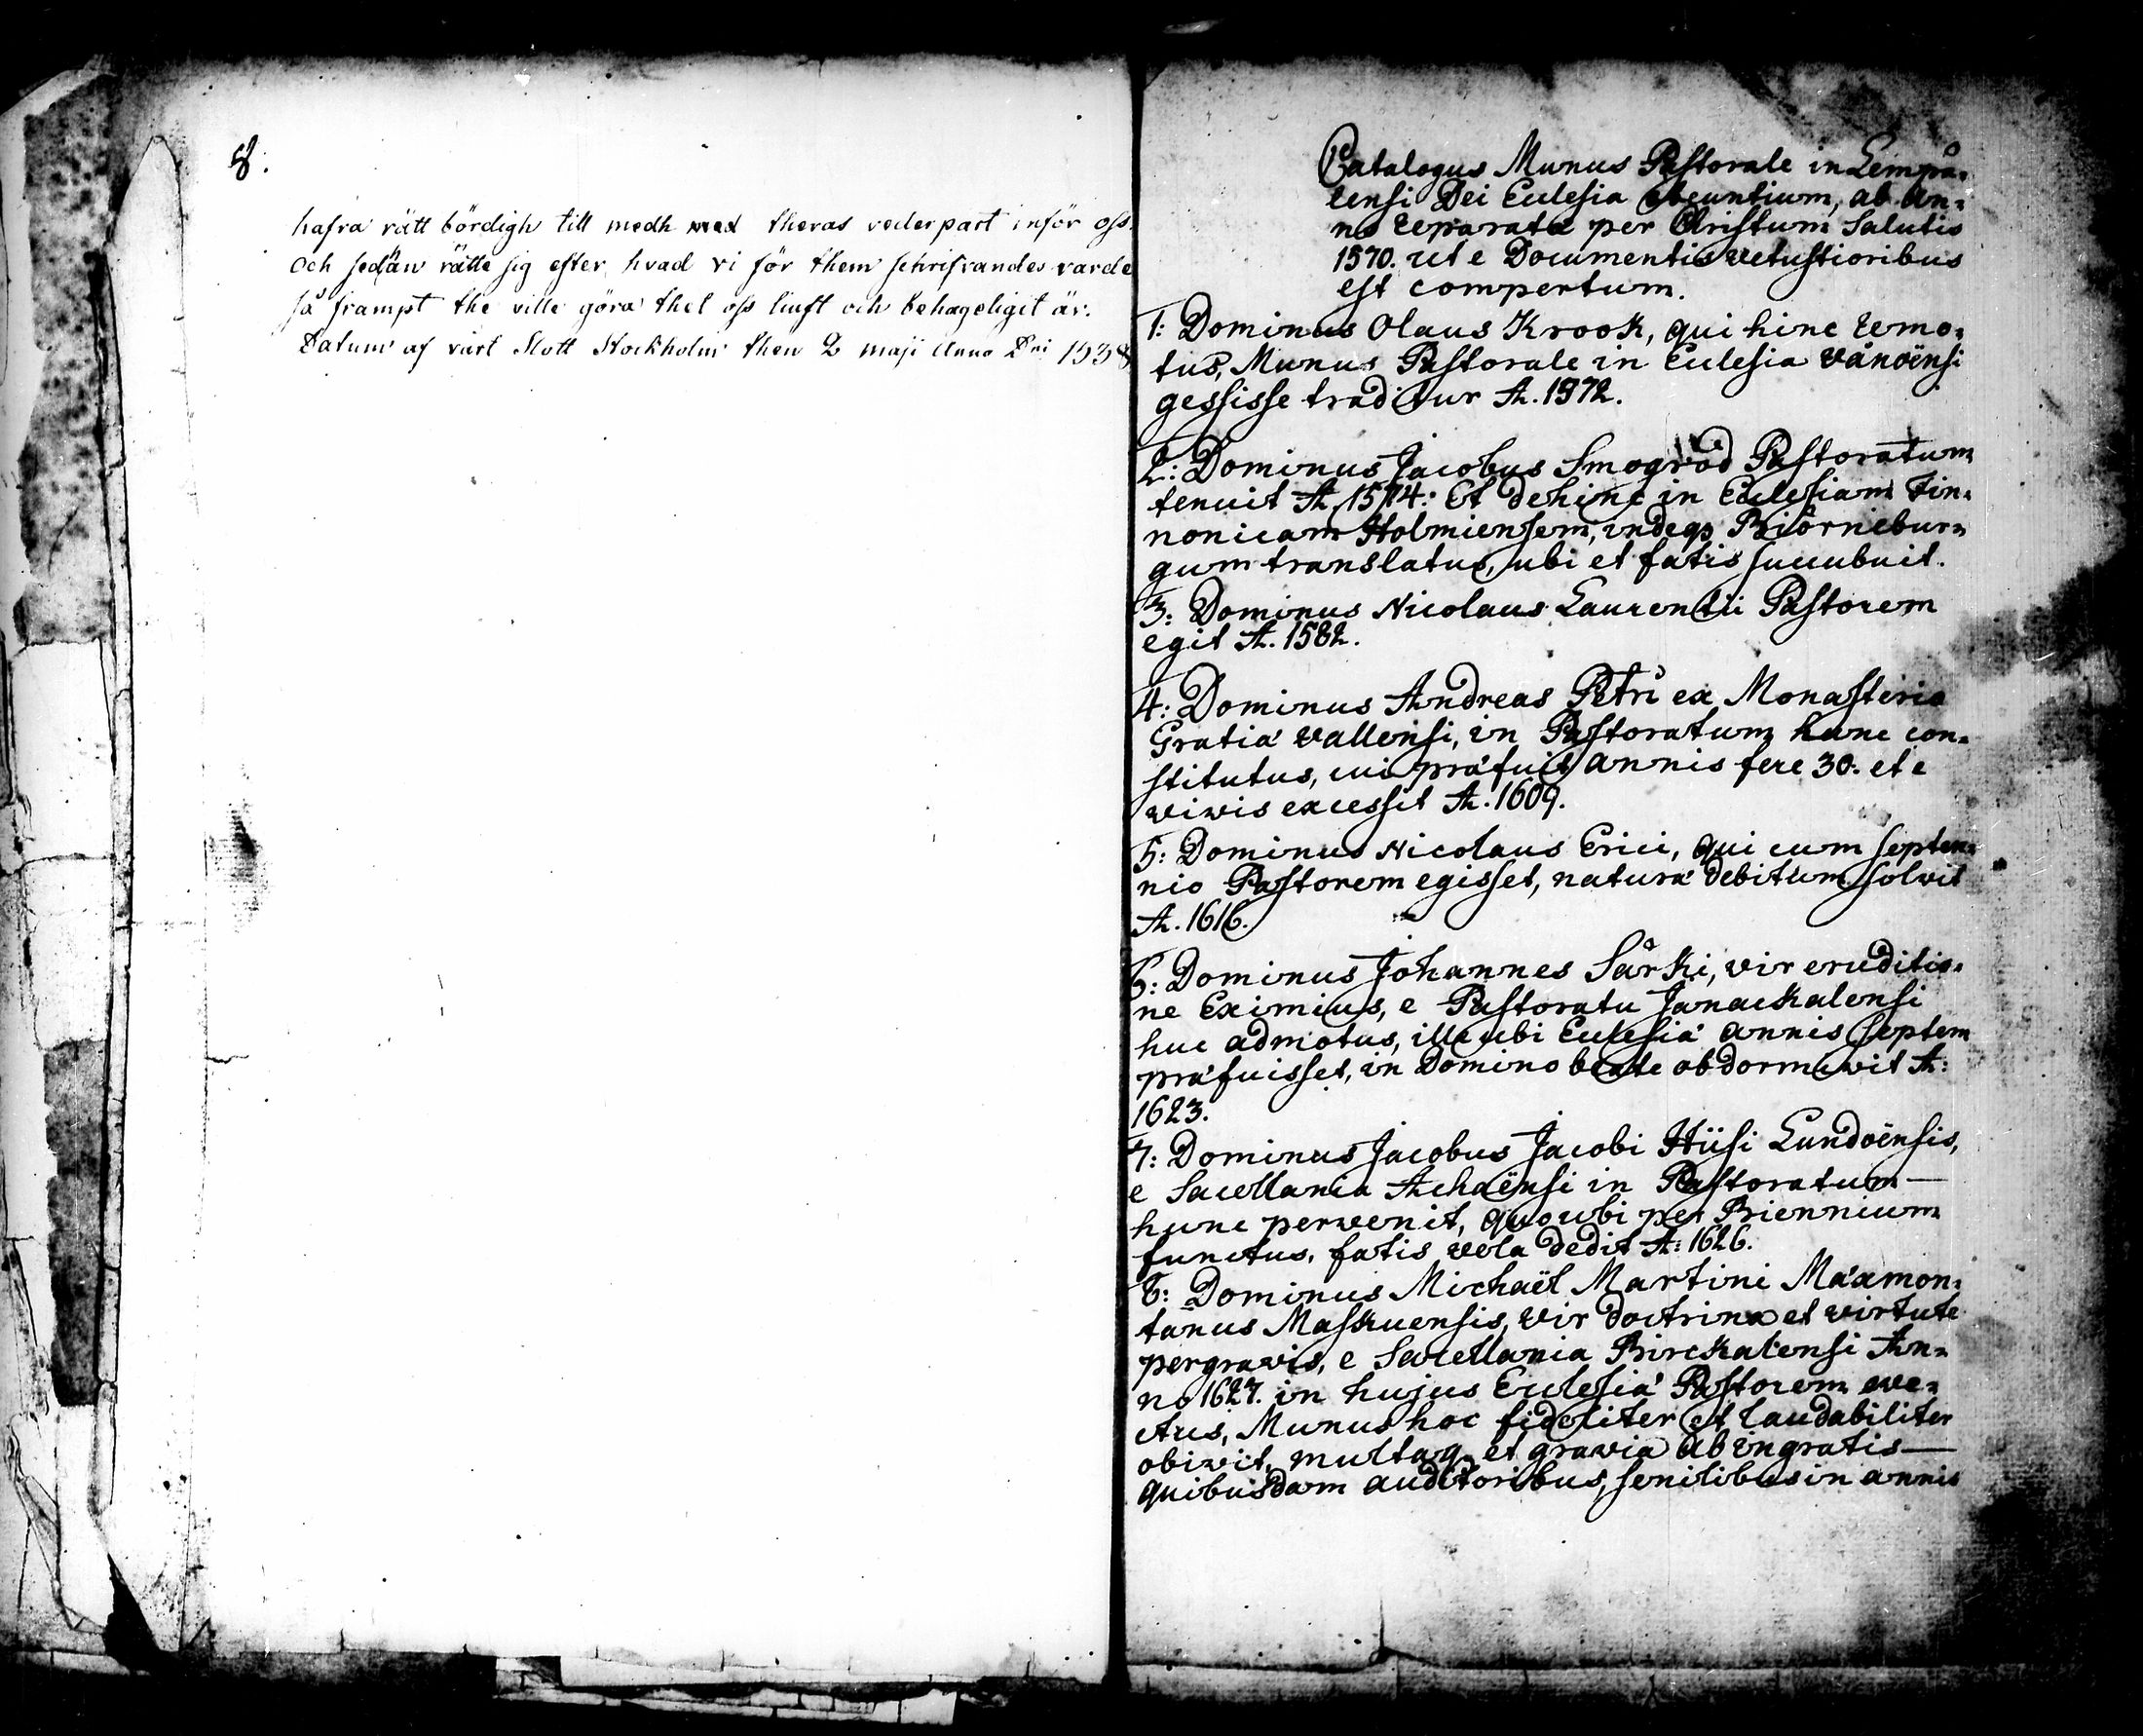 8.
hafra rätt bördigh till medh med theras vederpart inför oss.
och sedän rätte sig efter hvad vi för them schrifvandes varde
så frampt the ville göra thet oss liuft och behageligit är.
Datum af vårt Slott Stockholm then 2 maji Anno Dni 1538
Catalogus Munus Pastorale in Lempä=
lensi Dei Ecclesia obeuntium, ab An=
no reparatæ per Christum Salutis
1570. ut e Documentis vetustioribus
est compertum.
1: Dominus Olaus Krook, qui hinc remo=
tus, Munus Pastorale in Ecclesia Vånoënsi
gessisse traditur A. 1572.
2: Dominus Jacobus Smogrod Pastoratum
tenuit A. 1574: Et dehinc in Ecclesiam Fin=
nonicam Holmiensem, indeqs Biörnebur=
gum translatus, ubi et fatis succubuit.
3: Dominus Nicolaus Laurentii Pastorem
egit A. 1582.
4: Dominus Andreas Petri ex Monasterio
Gratiæ Vallensi, in Pastoratum hunc con=
stitutus, cui præfuit annis fere 30. et e
vivis excessit A. 1609.
5: Dominus Nicolaus Erici, qui cum septen=
nio Pastorem egisset, naturæ debitum solvit
A. 1616.
6: Dominus Johannes Särki, vir eruditio=
ne Eximius, e Pastoratu Janackalensi
huc admotus, ille ubi Ecclesiæ annis septem
præfuisset, in Domino beate obdormivit A:
1623.
7: Dominus Jacobus Jacobi Hiisi Lundoënsis,
e Sacellania Achaënsi in Pastoratum —
hunc pervenit, quo ubi per Biennium
functus, fatis vela dedit A: 1626.
8: Dominus Michaël Martini Mäxmon=
tanus Maskuensis, vir doctrina et virtute
pergravis, e Sacellania Birckalensi An=
no 1627. in hujus Ecclesiæ Pastorem eve=
ctus, Munus hoc fideliter et laudabiliter
obivit, multaq; et gravia ab ingratis —
quibusdam auditoribus, senilibus in annis